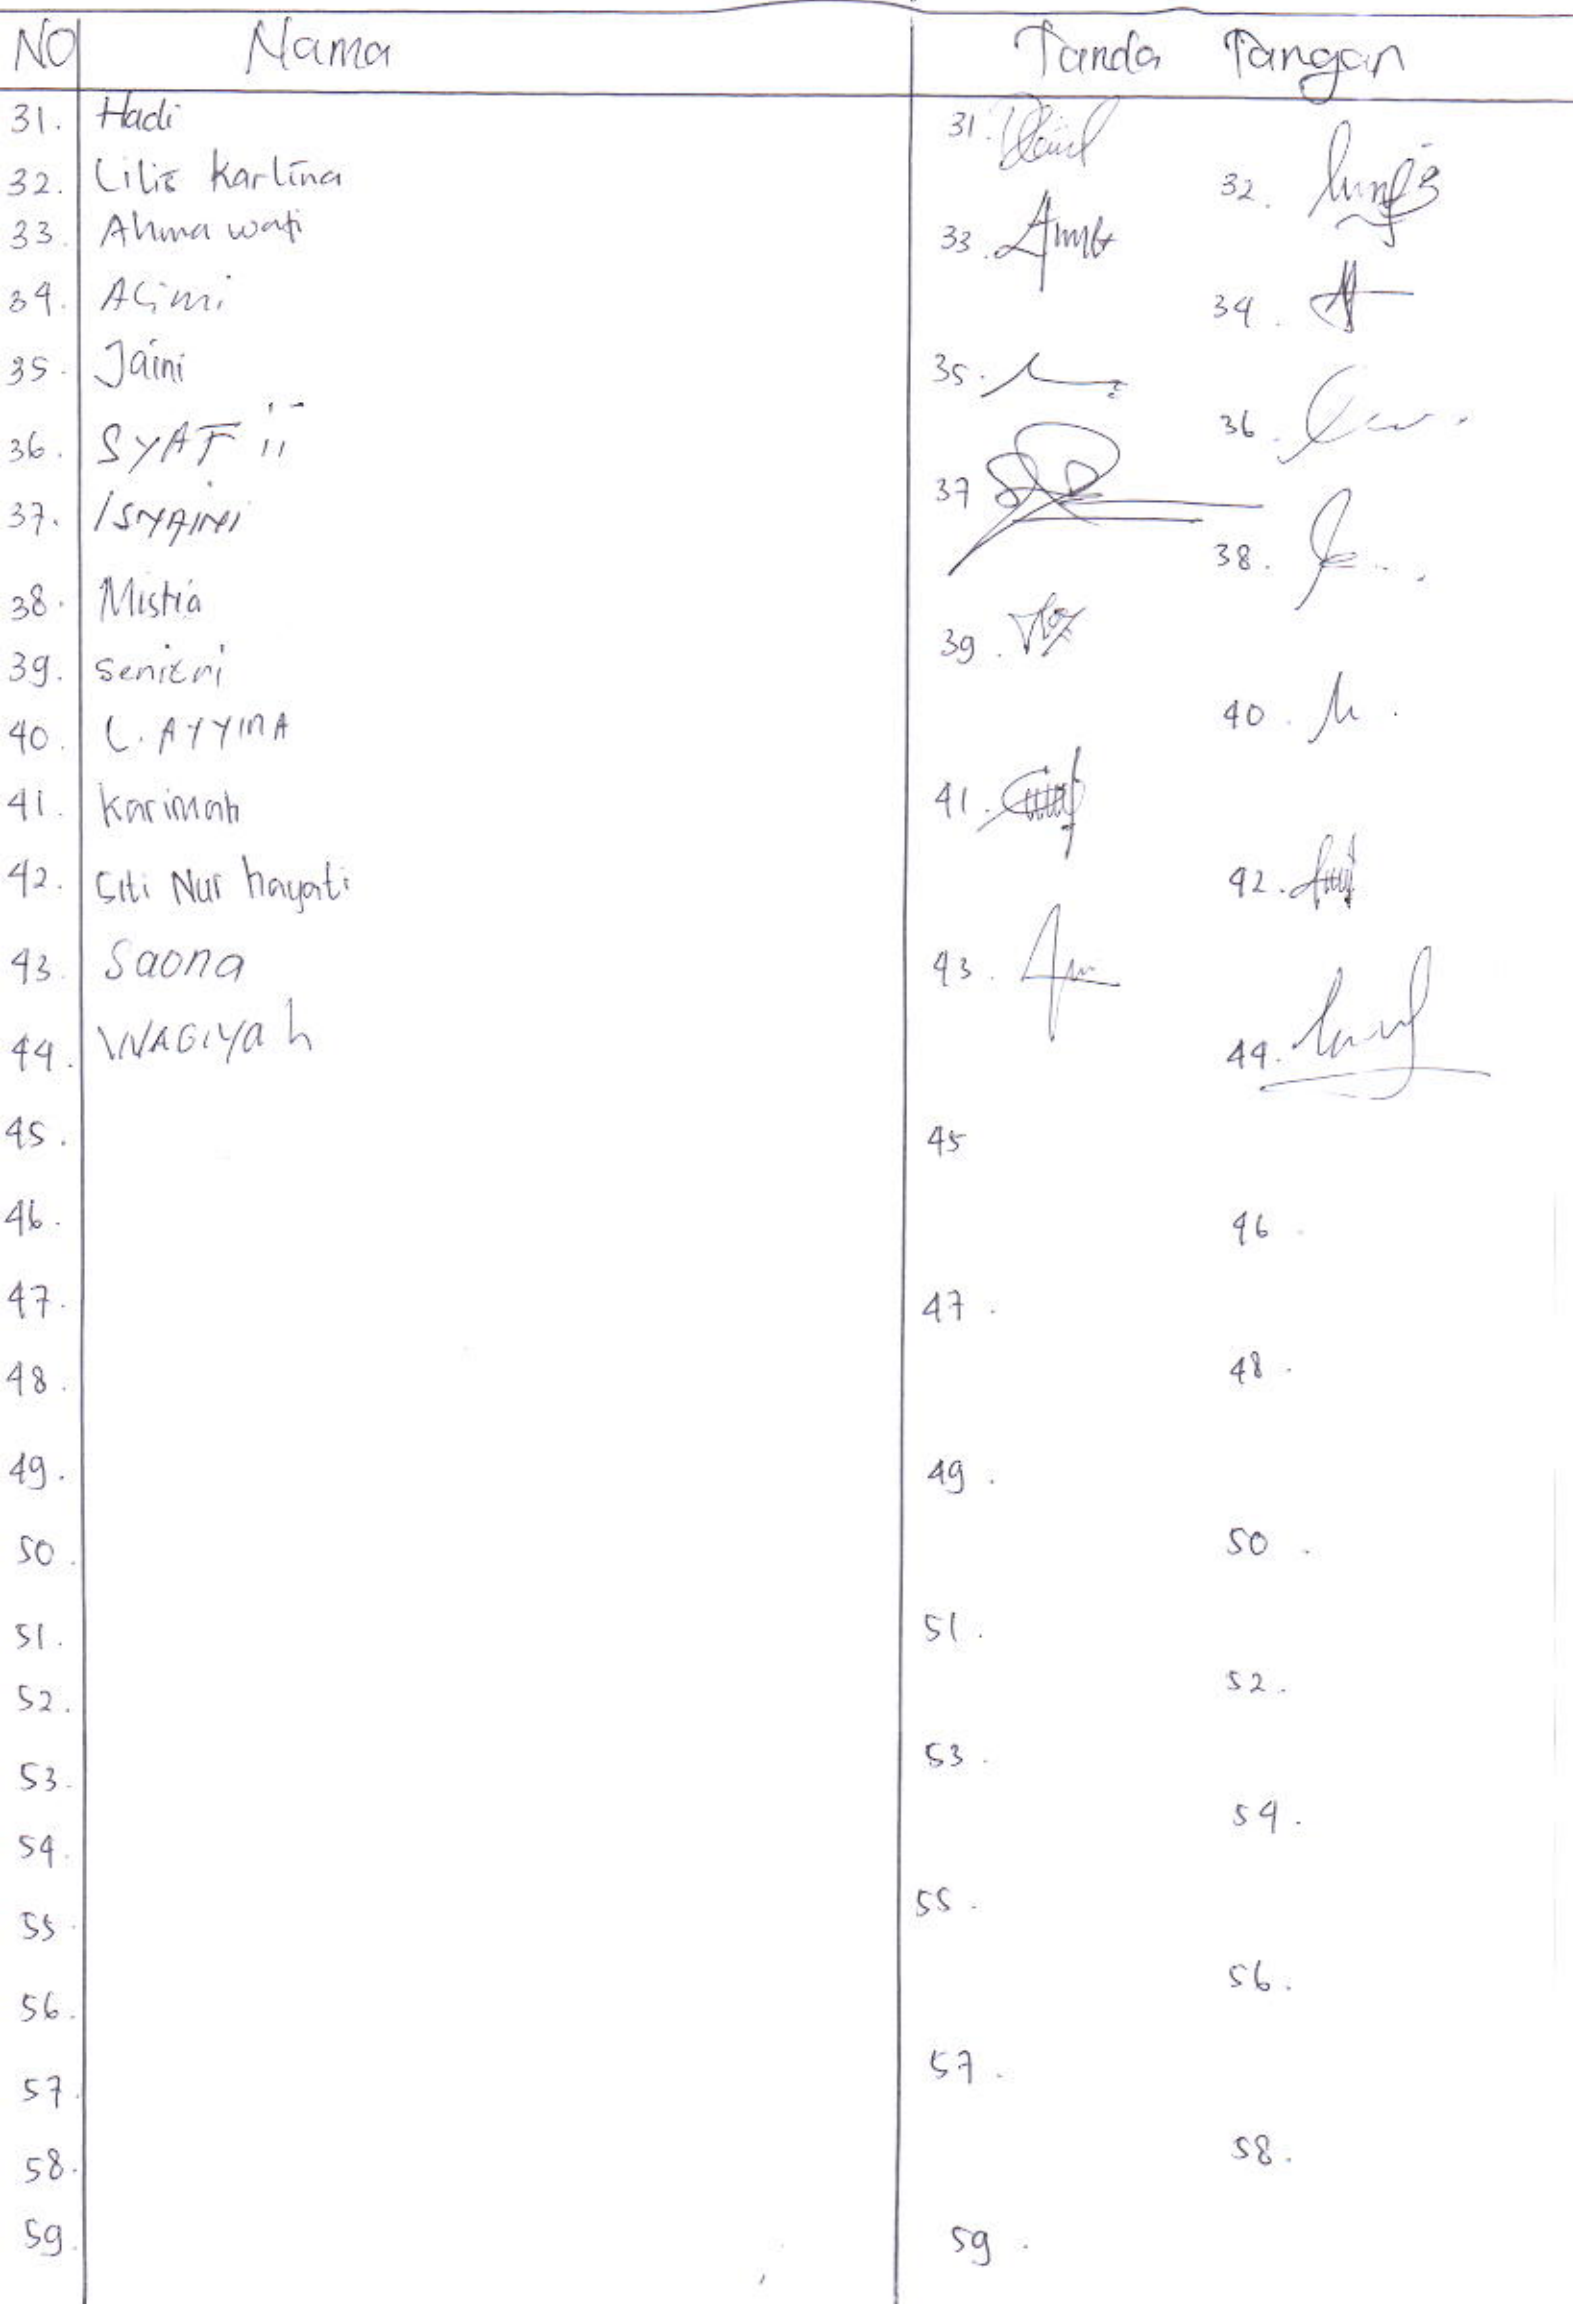 NO Nama Tanda Tangan
31. Hadi 31.
32. Lilis Karlina 32.
33. Ahma wati 33.
34. Alimi 34.
35. Jaini 35.
36. SYAF ii 36.
37. ISNAINI 37
38. Mistia 38.
39. Senitri 39.
40. L. AYYINA 40.
41. Karimah 41.
42. Siti Nur hayati 42.
43. Saona 43.
44. WAGIYah 44.
45. 45
46. 46.
47. 47.
48. 48.
49. 49.
50. 50.
51. 51.
52. 52.
53. 53.
54. 54.
55. 55.
56. 56.
57. 57.
58. 58.
59. 59.